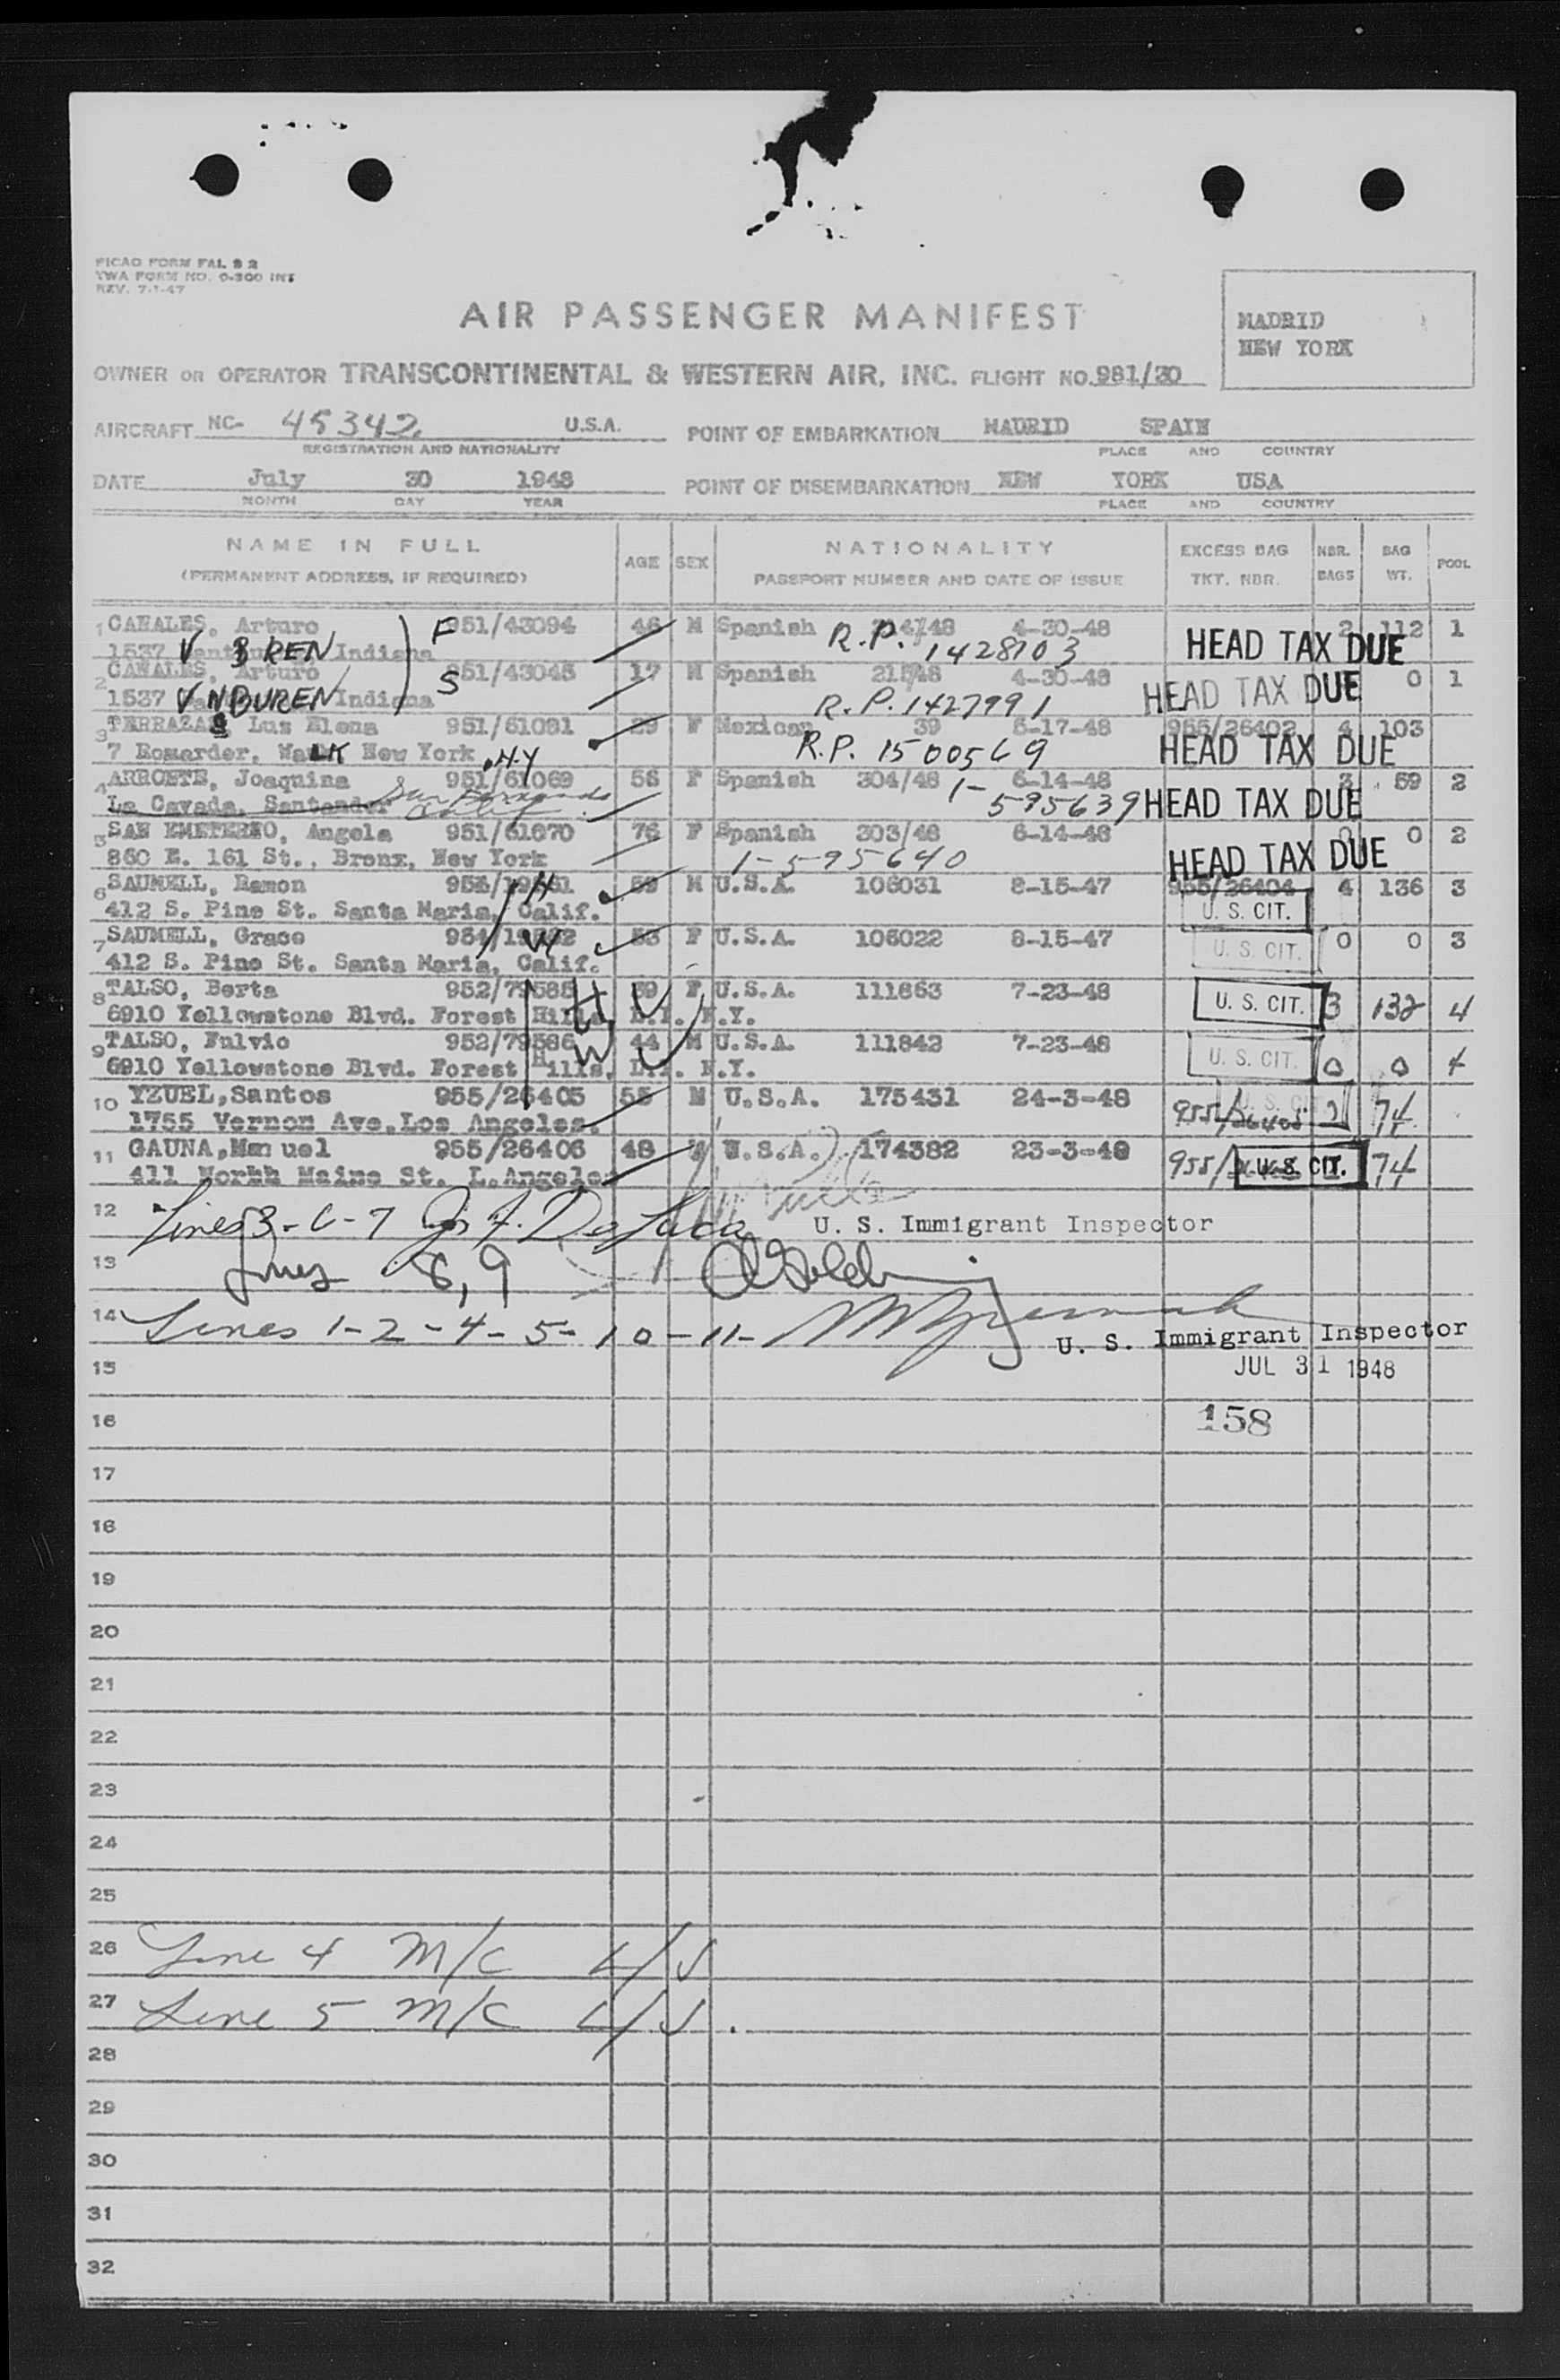 PICAO FORM FAL 9 2
TWA FORM NO. 0-300 INT
REV. 7-1-47
AIR PASSENGER MANIFEST
MADRID
NEW YORK
OWNER OR OPERATOR TRANSCONTINENTAL & WESTERN AIR, INC. FLIGHT NO. 981/30
AIRCRAFT NC- 45342 U.S.A. POINT OF EMBARKATION MADRID SPAIN
REGISTRATION AND NATIONALITY PLACE AND COUNTRY
DATE July 30 1948 POINT OF DISEMBARKATION NEW YORK USA
MONTH DAY YEAR PLACE AND COUNTRY
NAME IN FULL AGE SEX NATIONALITY EXCESS BAG NBR. BAG POOL
(PERMANENT ADDRESS, IF REQUIRED) PASSPORT NUMBER AND DATE OF ISSUE TKT. NBR. BAGS WT.
1 CANALES, Arturo F 951/43094 46 M Spanish 4-30-48 2 112 1
1537 V B REN Indiana R.P. 1428703 HEAD TAX DUE
2 CANALES, Arturo S 951/43045 17 M Spanish 4-30-48 0 1
1537 V N BUREN Indiana R.P. 1427991 HEAD TAX DUE
3 TERRAZAS Luz Elena 951/61081 29 F Mexican 39 5-17-48 955/26402 4 103
7 Bomarder, New York N.Y R.P. 1500569 HEAD TAX DUE
4 ARROSTE, Joaquina 951/61069 56 F Spanish 304/48 6-14-48 3 59 2
La Cavada, Santander 1-595639 HEAD TAX DUE
5 SAN EMETERIO, Angela 951/61070 76 F Spanish 303/48 6-14-48 0 0 2
860 E. 161 St., Bronx, New York 1-595640 HEAD TAX DUE
6 SAUMELL, Ramon H 59 M U.S.A. 106031 8-15-47 955/26404 4 136 3
412 S. Pine St. Santa Maria, Calif. U. S. CIT.
7 SAUMELL, Grace W 53 F U.S.A. 106022 8-15-47 0 0 3
412 S. Pine St. Santa Maria, Calif. U. S. CIT.
8 TALSO, Berta 952/79585 39 F U.S.A. 111863 7-23-48 U. S. CIT. 3 132 4
6910 Yellowstone Blvd. Forest Hills, L.I. N.Y. H
9 TALSO, Fulvio 952/79586 44 M U.S.A. 111842 7-23-48 U. S. CIT. 0 0 4
6910 Yellowstone Blvd. Forest Hills, L.I. N.Y. W
10 YZUEL, Santos 955/26405 55 M U.S.A. 175431 24-3-48 955/26405 2 74
1755 Vernon Ave. Los Angeles. U. S. CIT.
11 GAUNA, Manuel 955/26406 48 M U.S.A. 174382 23-3-48 955/ U. S. CIT. 74
411 North Maine St. L. Angeles
12 Lines 3-6-7 Jos. F. DeLuca U. S. Immigrant Inspector
13 Lines 8, 9
14 Lines 1-2-4-5-10-11-
U. S. Immigrant Inspector
15 JUL 31 1948
16 158
17
18
19
20
21
22
23
24
25
26 Line 4 M/C L/S
27 Line 5 M/C L/S.
28
29
30
31
32